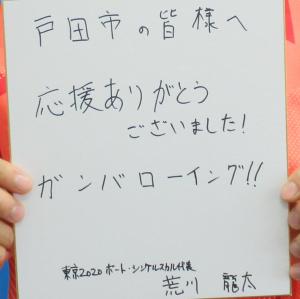 戸田市の皆様へ
応援ありがとう
ございました!
ガンバローイング!!
東京2020 ボート・シングルスカル代表
荒川 龍太